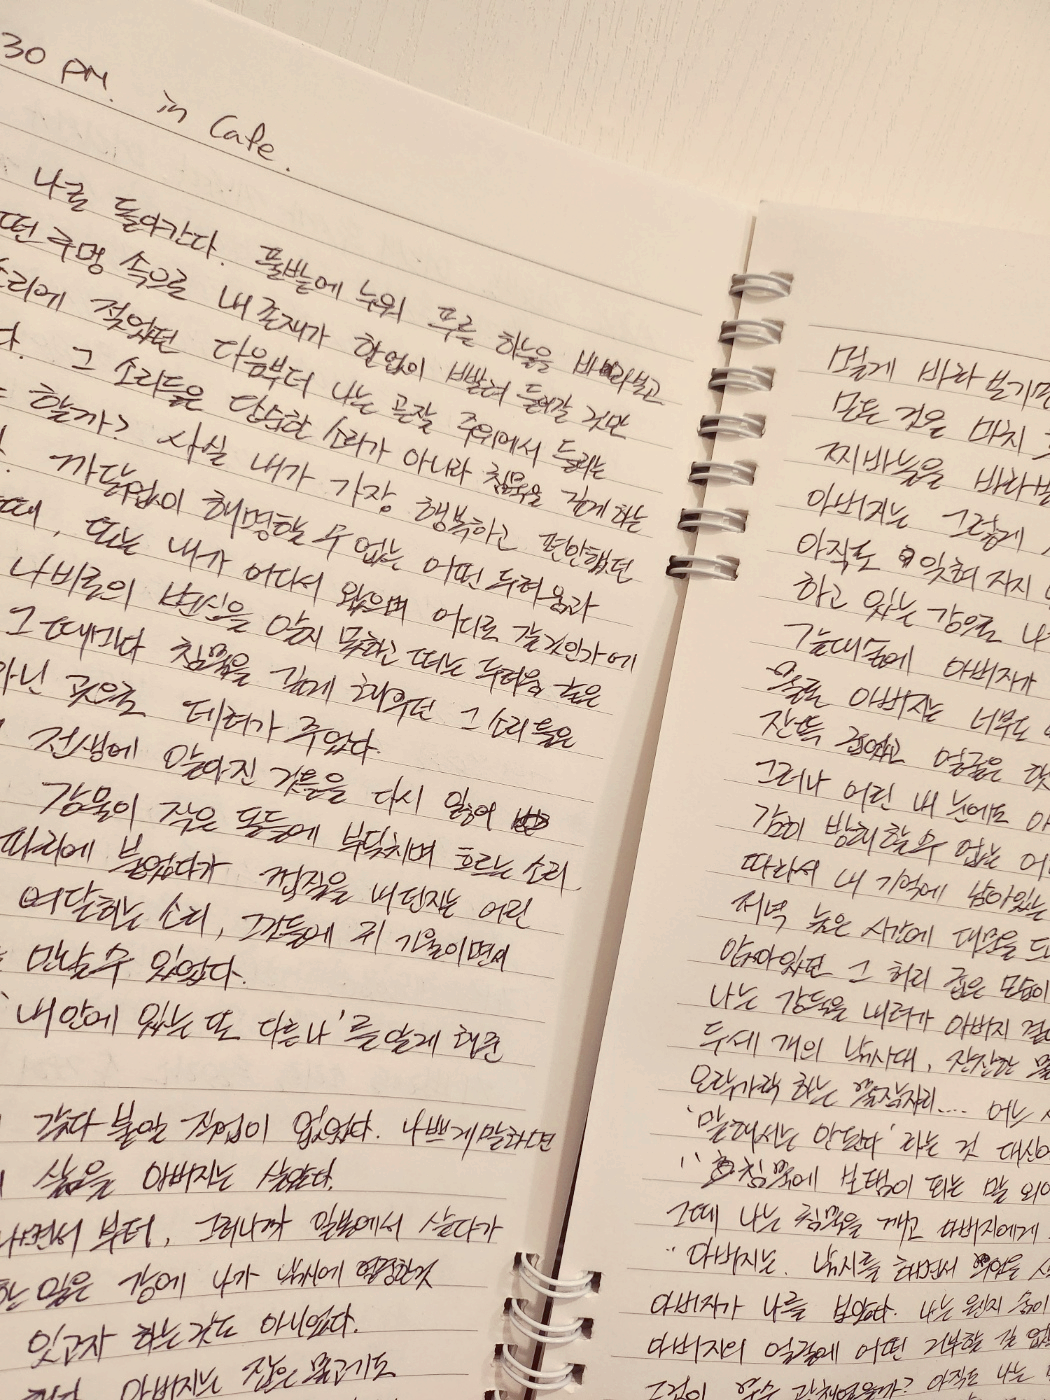 30 PM. in Cafe.
나로 돌아간다. 풀밭에 누워 푸른 하늘을 바라보고
떤 구멍 속으로 내 존재가 한없이 빨려 들어갈 것만
소리에 젖었던 다음부터 나는 곧잘 주위에서 들리는
다. 그 소리들은 단순한 소리가 아니라 침묵을 깊게 하는
할까? 사실 내가 가장 행복하고 편안했던
까닭없이 해명할 수 없는 어떤 두려움과
때, 또는 내가 어디서 왔으며 어디로 갈 것인가에
나비로의 변신을 알지 못하고 떠는 두려움 같은
그때마다 침묵을 깊게 해주던 그 소리들은
아닌 곳으로 데려가 주었다.
전생에 알아진 것들을 다시 잃어
강물이 작은 돌들에 부딪치며 흐르는 소리
따리에 붙었다가 껍질을 내던지는 어린
여달하는 소리, 그것들에 귀 기울이면서
만날 수 있었다.
'내 안에 있는 또 다른 나'를 알게 해준
갖다 붙일 직업이 없었다. 나쁘게 말하면
삶을 아버지는 살았다.
나면서 부터, 그러니까 일본에서 살다가
하는 일은 강에 나가 낚시에 열중한 것
잊고자 하는 것도 아니었다.
아버지는 잡은 물고기도
멀게 바라보기만
모든 것을 마치
찌바늘을 바라보
아버지는 그렇게
아직도 잊혀지지
하고 있는 강으로 나
그늘대숲에 아버지가
아버지는 너무도
잔뜩 걸었고 얼굴은
그러나 어린 내 눈에도 아
감히 방해할 수 없는 어
따라서 내 기억에 남아있는
저녁 늦은 시간에 대문을
앉아있던 그 허리 굽은 모습이
나는 강둑을 내려가 아버지 곁
두세 개의 낚시대, 잔잔한 물
오락가락 하는 물잠자리.... 어느
'말해서는 안된다' 라는 것 대신에
" 침묵에 보탬이 되는 말 외에
그때 나는 침묵을 깨고 아버지에게
" 아버지는. 낚시를 하면서
아버지가 나를 보았다. 나는 왠지 숨이
아버지의 얼굴에 어떤 거부할 길 없
그것이 아직도 나는